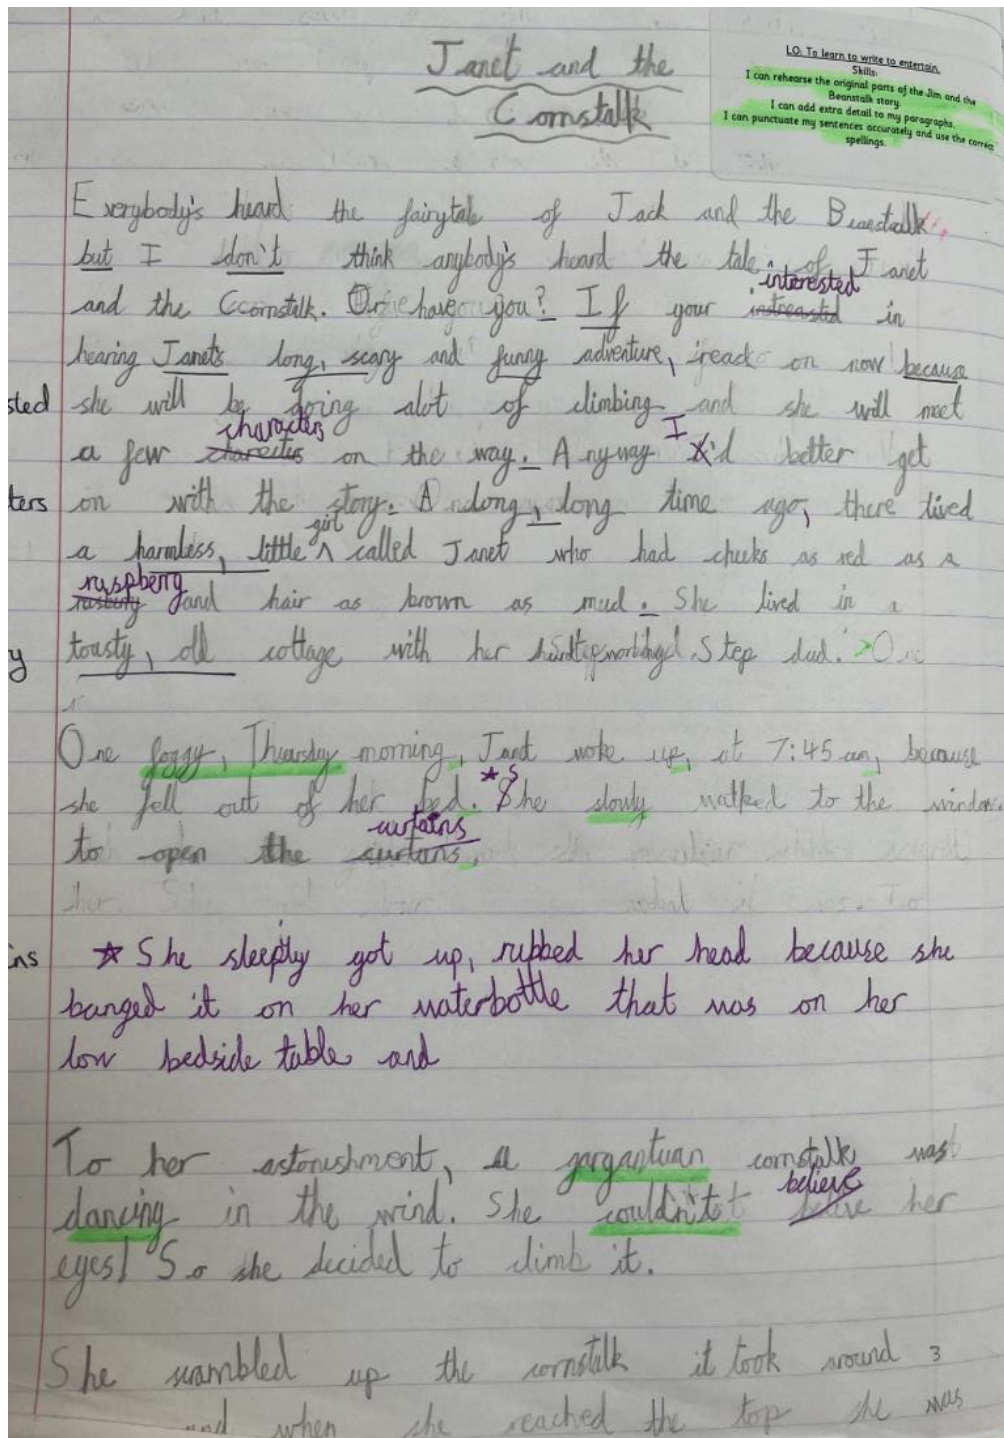 Janet and the
Cornstalk
LO: To learn to write to entertain.
Skills:
I can rehearse the original parts of the Jim and the
Beanstalk story.
I can add extra detail to my paragraphs.
I can punctuate my sentences accurately and use the correct
spellings.
Everybody's heard the fairytale of Jack and the Beanstalk,
but I don't think anybody's heard the tale of Janet
interested
and the Ccornstalk. Or have you? If your instreasted in
hearing Janet's long, scary and funny adventure, read on now because
sted she will be going alot of climbing and she will meet
characters I
a few charecters on the way. Anyway I'd better get
ters on with the story. A long, long time ago, there lived
girl
a harmless, little ^ called Janet who had cheeks as red as a
raspberry
rasbury and hair as brown as mud. She lived in a
y tousty, old cottage with her Step dad. >One
One foggy, Thursday morning, Janet woke up, at 7:45 am, because
* s
she fell out of her bed. She slowly walked to the window
curtains
to open the curtans.
her. She what it was. To
ns * She sleeply got up, rubbed her head because she
banged it on her waterbottle that was on her
low bedside table and
To her astonishment, a gargantuan cornstalk was
believe
dancing in the wind. She couldn't beleive her
eyes! So she decided to climb it.
She scrambled up the cornstalk it took around 3
and when she reached the top she was